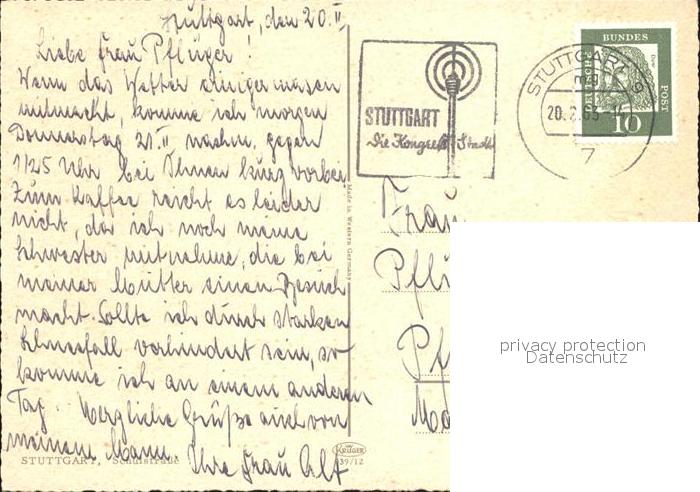 Stuttgart, den 20. II.
Liebe Frau Pflüger!
Wenn das Wetter einigermasen
mitmacht, komme ich morgen
Donnerstag 21. II nachm. gegen
1/25 Uhr bei Ihnen kurz vorbei
Zum Kaffee reicht es leider
nicht, da ich noch meine
Schwester mitnehme, die bei
meiner Mutter einen Besuch
macht. Sollte ich durch starken
Schneefall verhindert sein, so
komme ich an einem anderen
Tag. Herzliche Grüße auch von
meinem Mann. Ihre Frau Alf
STUTTGART, Schulstraße
Made in Western Germany
KRÜGER
939/12
STUTTGART
Die Kongreß Stadt
STUTTGART 9
20.2.63
7
BUNDES
POST
10
Frau
Pflü
privacy protection
Datenschutz